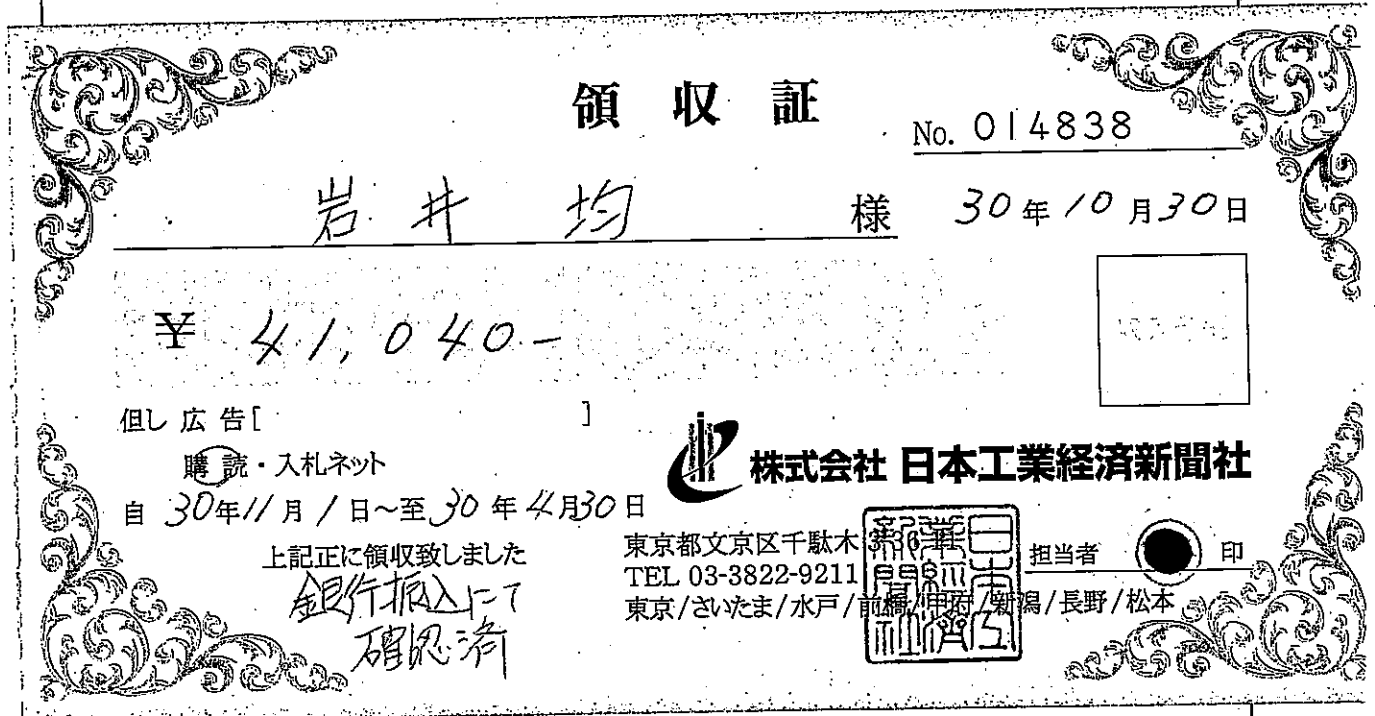 領収証
No. 014838
岩井 均 様
30年10月30日
¥ 41,040-
但し 広告[ ]
購読・入札ネット
自 30年11月1日~至30年4月30日
上記正に領収致しました
銀行振込にて
確認済
株式会社 日本工業経済新聞社
東京都文京区千駄木
TEL 03-3822-9211
東京/さいたま/水戸/前橋/甲府/新潟/長野/松本
担当者 印
日本工業経済新聞社